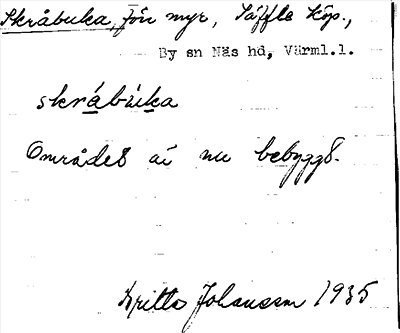 Skråbuka, förr myr, Säffle köp.,
By sn Näs hd, Värml.l.
skrábúka
Området är nu bebyggt.
Britta Johansson 1935